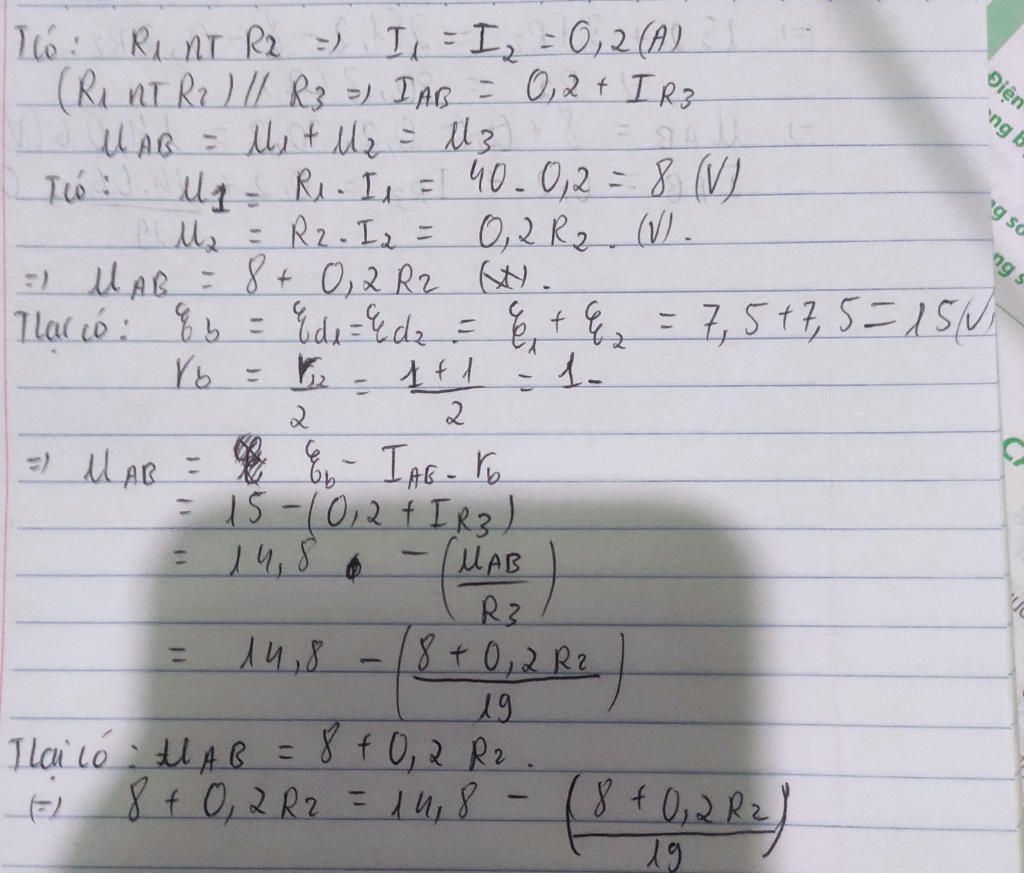 T có: R1 nT R2 => I1 = I2 = 0,2 (A)
(R1 nT R2) // R3 => IAB = 0,2 + IR3
UAB = U1 + U2 = U3
T có: U1 = R1 . I1 = 40 . 0,2 = 8 (V)
U2 = R2 . I2 = 0,2 R2 . (V) .
=> UAB = 8 + 0,2 R2 (V) .
T lại có: ξb = ξd1 = ξd2 = ξ1 + ξ2 = 7,5 + 7,5 = 15 (V)
rb = r12/2 = (1 + 1)/2 = 1
=> UAB = ξb - IAB . rb
= 15 - (0,2 + IR3)
= 14,8 - (UAB/R3)
= 14,8 - ((8 + 0,2 R2)/19)
T lại có : UAB = 8 + 0,2 R2 .
(=) 8 + 0,2 R2 = 14,8 - ((8 + 0,2 R2)/19)
Điện